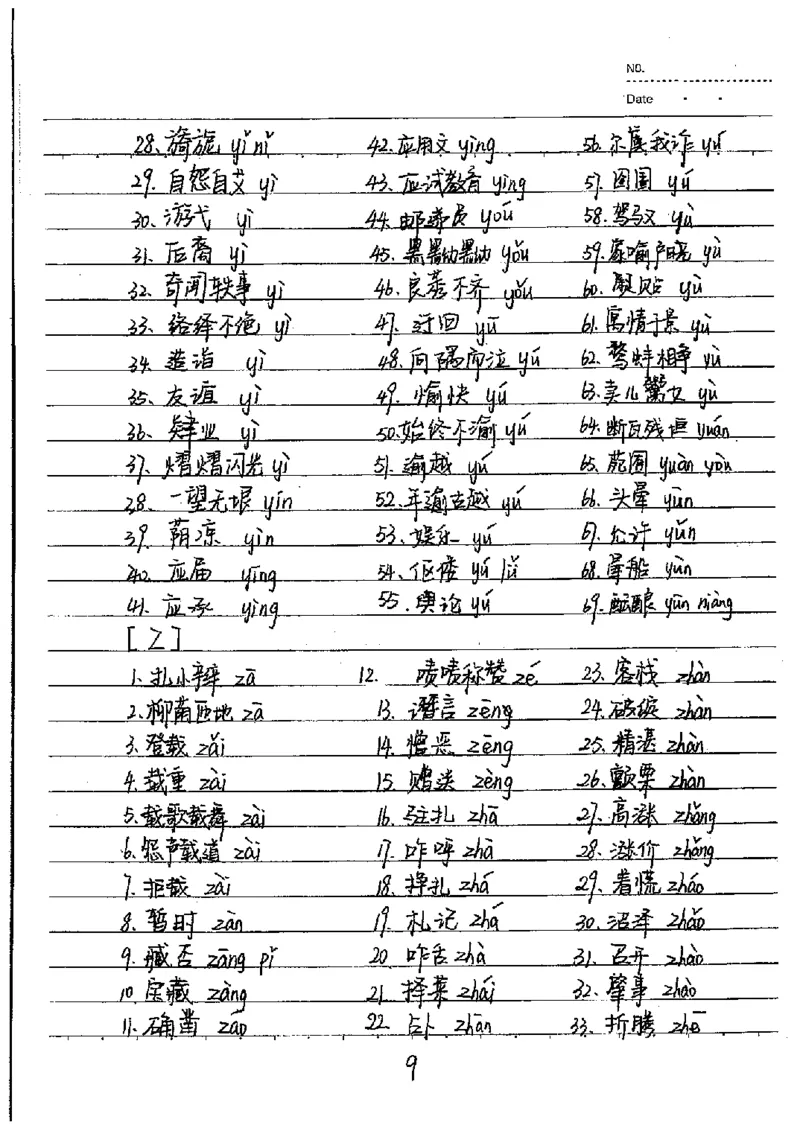 NO.
Date
28、旖旎 yǐ nǐ
29、自怨自艾 yì
30、游弋 yì
31、后裔 yì
32、奇闻轶事 yì
33、络绎不绝 yì
34、造诣 yì
35、友谊 yì
36、肄业 yì
37、熠熠闪光 yì
38、一望无垠 yín
39、荫凉 yìn
40、应届 yīng
41、应承 yìng
42、应用文 yìng
43、应试教育 yìng
44、邮递员 yóu
45、黑黝黝 yǒu
46、良莠不齐 yǒu
47、迂回 yū
48、向隅而泣 yú
49、愉快 yú
50、始终不渝 yú
51、逾越 yú
52、年逾古 yú
53、娱乐 yú
54、伛偻 yǔ lǚ
55、舆论 yú
56、尔虞我诈 yú
57、囹圄 yǔ
58、驾驭 yù
59、家喻户晓 yù
60、熨贴 yù
61、寓情于景 yù
62、鹬蚌相争 yù
63、卖儿鬻女 yù
64、断瓦残垣 yuán
65、苑囿 yuàn yòu
66、头晕 yūn
67、允许 yǔn
68、晕船 yùn
69、酝酿 yùn niàng
[Z]
1、扎小辫 zā
2、柳荫匝地 zā
3、登载 zǎi
4、载重 zài
5、载歌载舞 zài
6、怨声载道 zài
7、拒载 zài
8、暂时 zàn
9、臧否 zāng pǐ
10、宝藏 zàng
11、确凿 záo
12、啧啧称赞 zé
13、谮言 zèng
14、憎恶 zēng
15、赠送 zèng
16、驻扎 zhā
17、咋呼 zhā
18、挣扎 zhá
19、札记 zhá
20、咋舌 zhà
21、择菜 zhái
22、占卜 zhān
23、客栈 zhàn
24、破绽 zhàn
25、精湛 zhàn
26、颤栗 zhàn
27、高涨 zhǎng
28、涨价 zhǎng
29、着慌 zháo
30、沼泽 zhǎo
31、召开 zhào
32、肇事 zhào
33、折腾 zhē
9